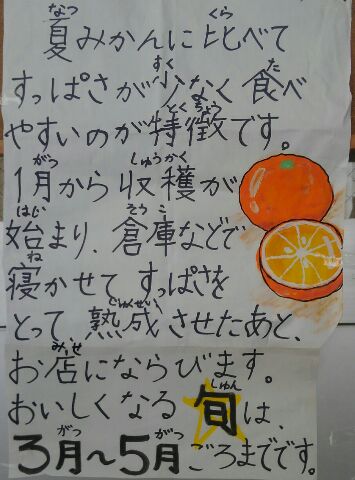 夏みかんに比べて
すっぱさが少なく食べ
やすいのが特徴です。
1月から収穫が
始まり、倉庫などで
寝かせてすっぱさを
とって熟成させたあと、
お店にならびます。
おいしくなる旬は、
3月〜5月ごろまでです。